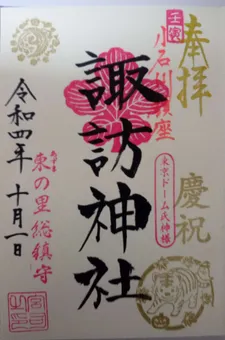 奉拝
慶祝
壬寅
小石川鎮座
東京ドーム氏神様
諏訪神社
あずま
東の里総鎮守
令和四年十月一日